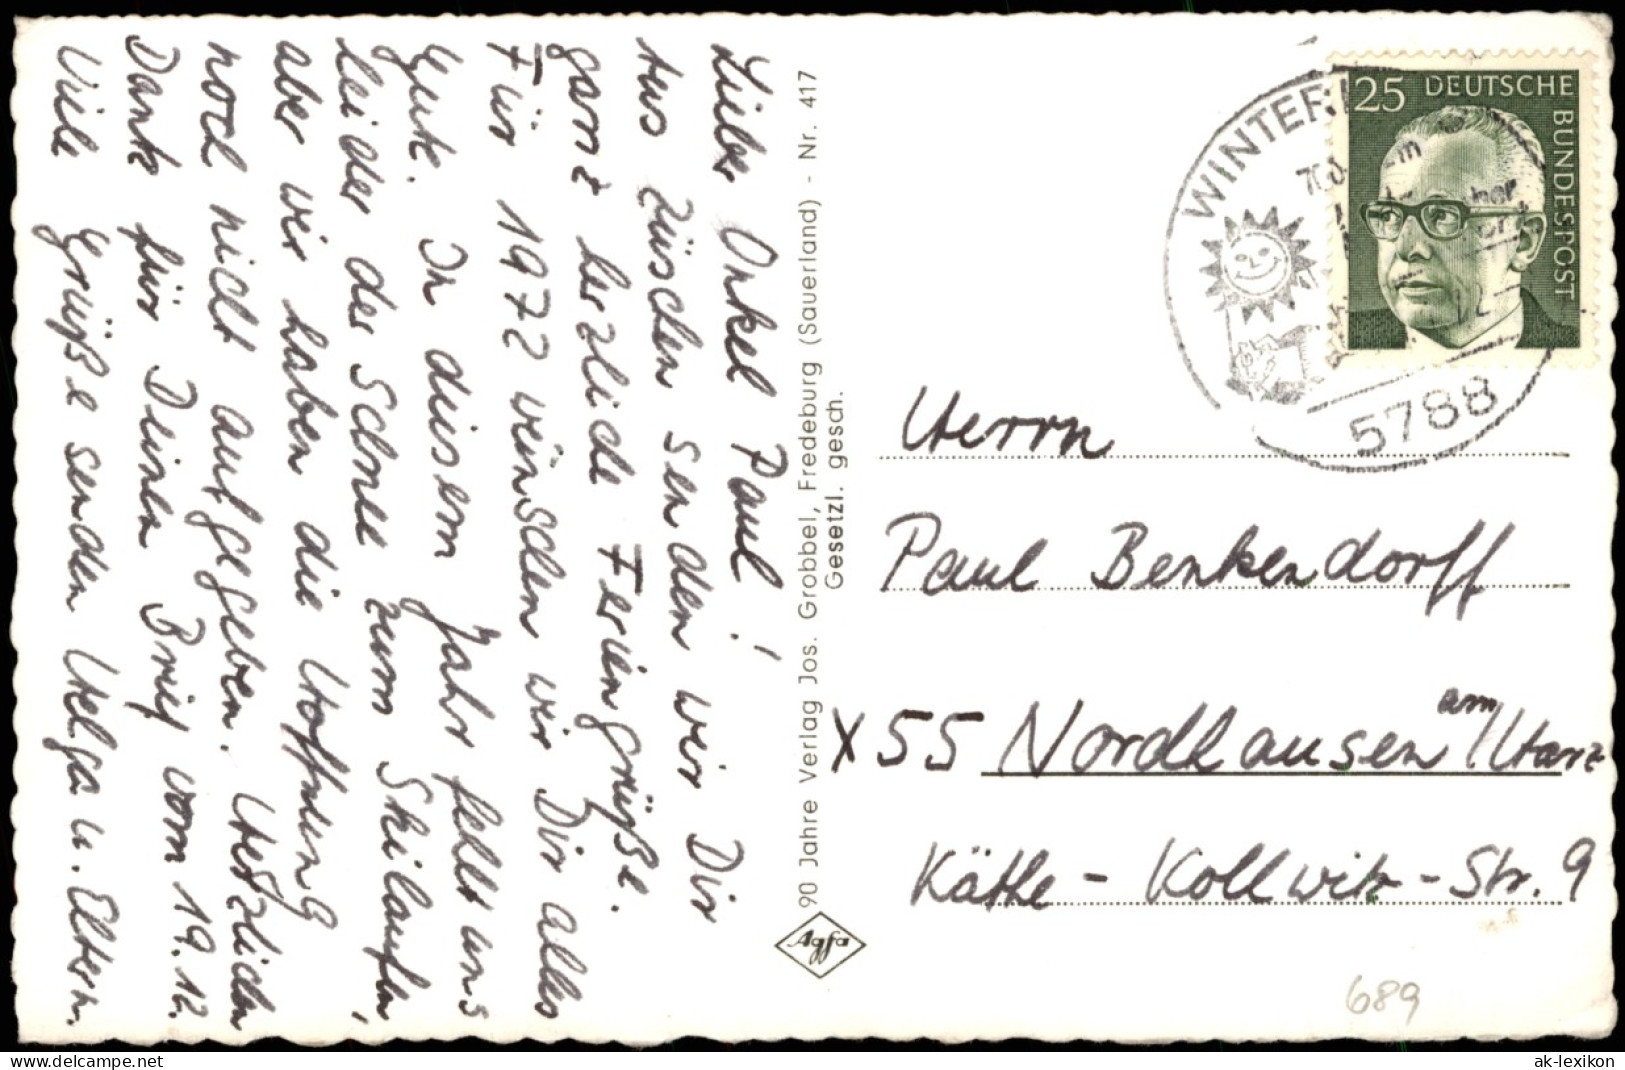 Lieber Onkel Paul!
Aus Züschen senden wir Dir
ganz herzliche Feriengrüße.
Für 1972 wünschen wir Dir alles
Gute. In diesem Jahr fehlt uns
leider der Schnee zum Skilaufen,
aber wir haben die Hoffnung
noch nicht aufgegeben. Herzlichen
Dank für Deinen Brief vom 19.12.
Viele Grüße senden Helga u. Eltern.
90 Jahre Verlag Jos. Grobbel, Fredeburg (Sauerland) - Nr. 417
Gesetzl. gesch.
Agfa
WINTER
5788
25 DEUTSCHE
BUNDESPOST
Herrn
Paul Benkendorff
X 55 Nordhausen am/Harz
Käthe-Kollwitz-Str. 9
689
www.delcampe.net
ak-lexikon